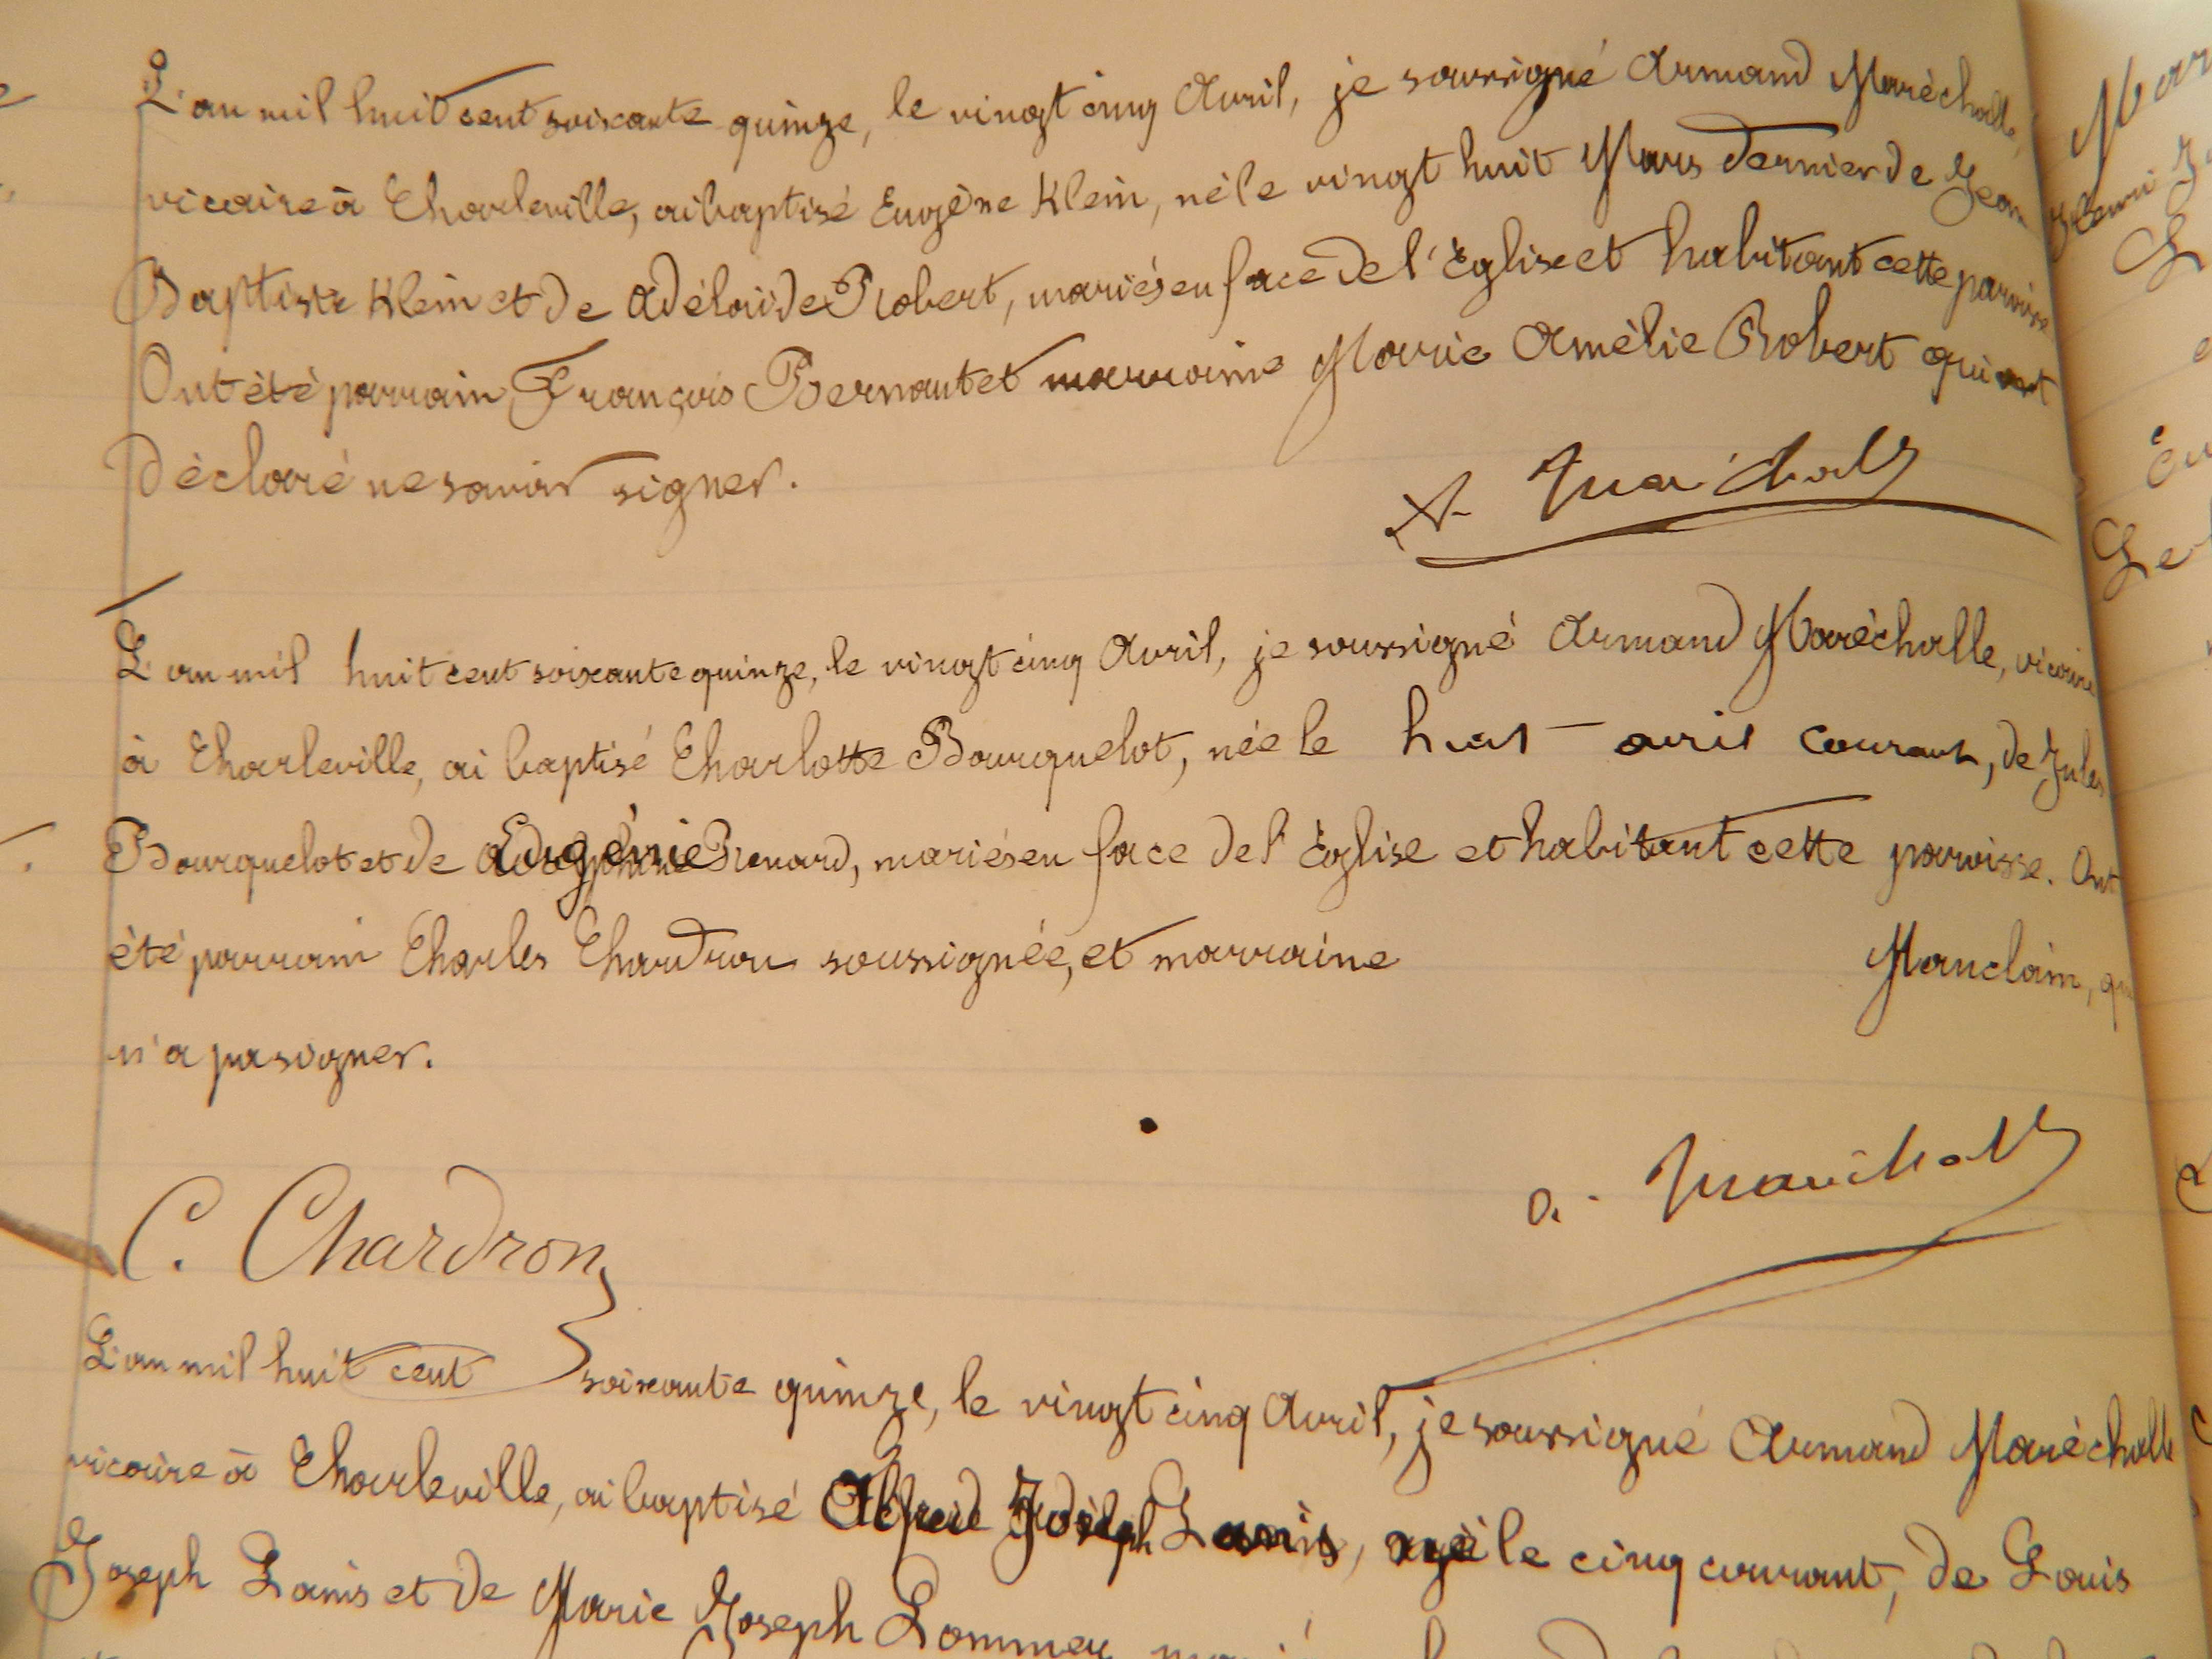 L'an mil huit cent soixante quinze, le vingt cinq Avril, je soussigné Armand Maréchalle,
vicaire à Charleville, ai baptisé Eugène Klein, né le vingt huit Mars dernier de Jean
Baptiste Klein et de Adélaïde Robert, mariés en face de l'Église et habitant cette paroisse
Ont été parrain François Bernaut et marraine Marie Amélie Robert qui ont
déclaré ne savoir signer.
A. Maréchalle
L'an mil huit cent soixante quinze, le vingt cinq Avril, je soussigné Armand Maréchalle, vicaire
à Charleville, ai baptisé Charlotte Bourquelot, née le huit avril courant, de Jules
Bourquelot et de Eugénie Renard, mariés en face de l'Église et habitant cette paroisse. Ont
été parrain Charles Chardron soussignée, et marraine Manclain, qui
n'a pu signer.
C. Chardron
a. Maréchalle
L'an mil huit cent soixante quinze, le vingt cinq Avril, je soussigné Armand Maréchalle
vicaire à Charleville, ai baptisé Alfred Joseph Lanis, né le cinq courant, de Louis
Joseph Lanis et de Marie Joseph Lommer